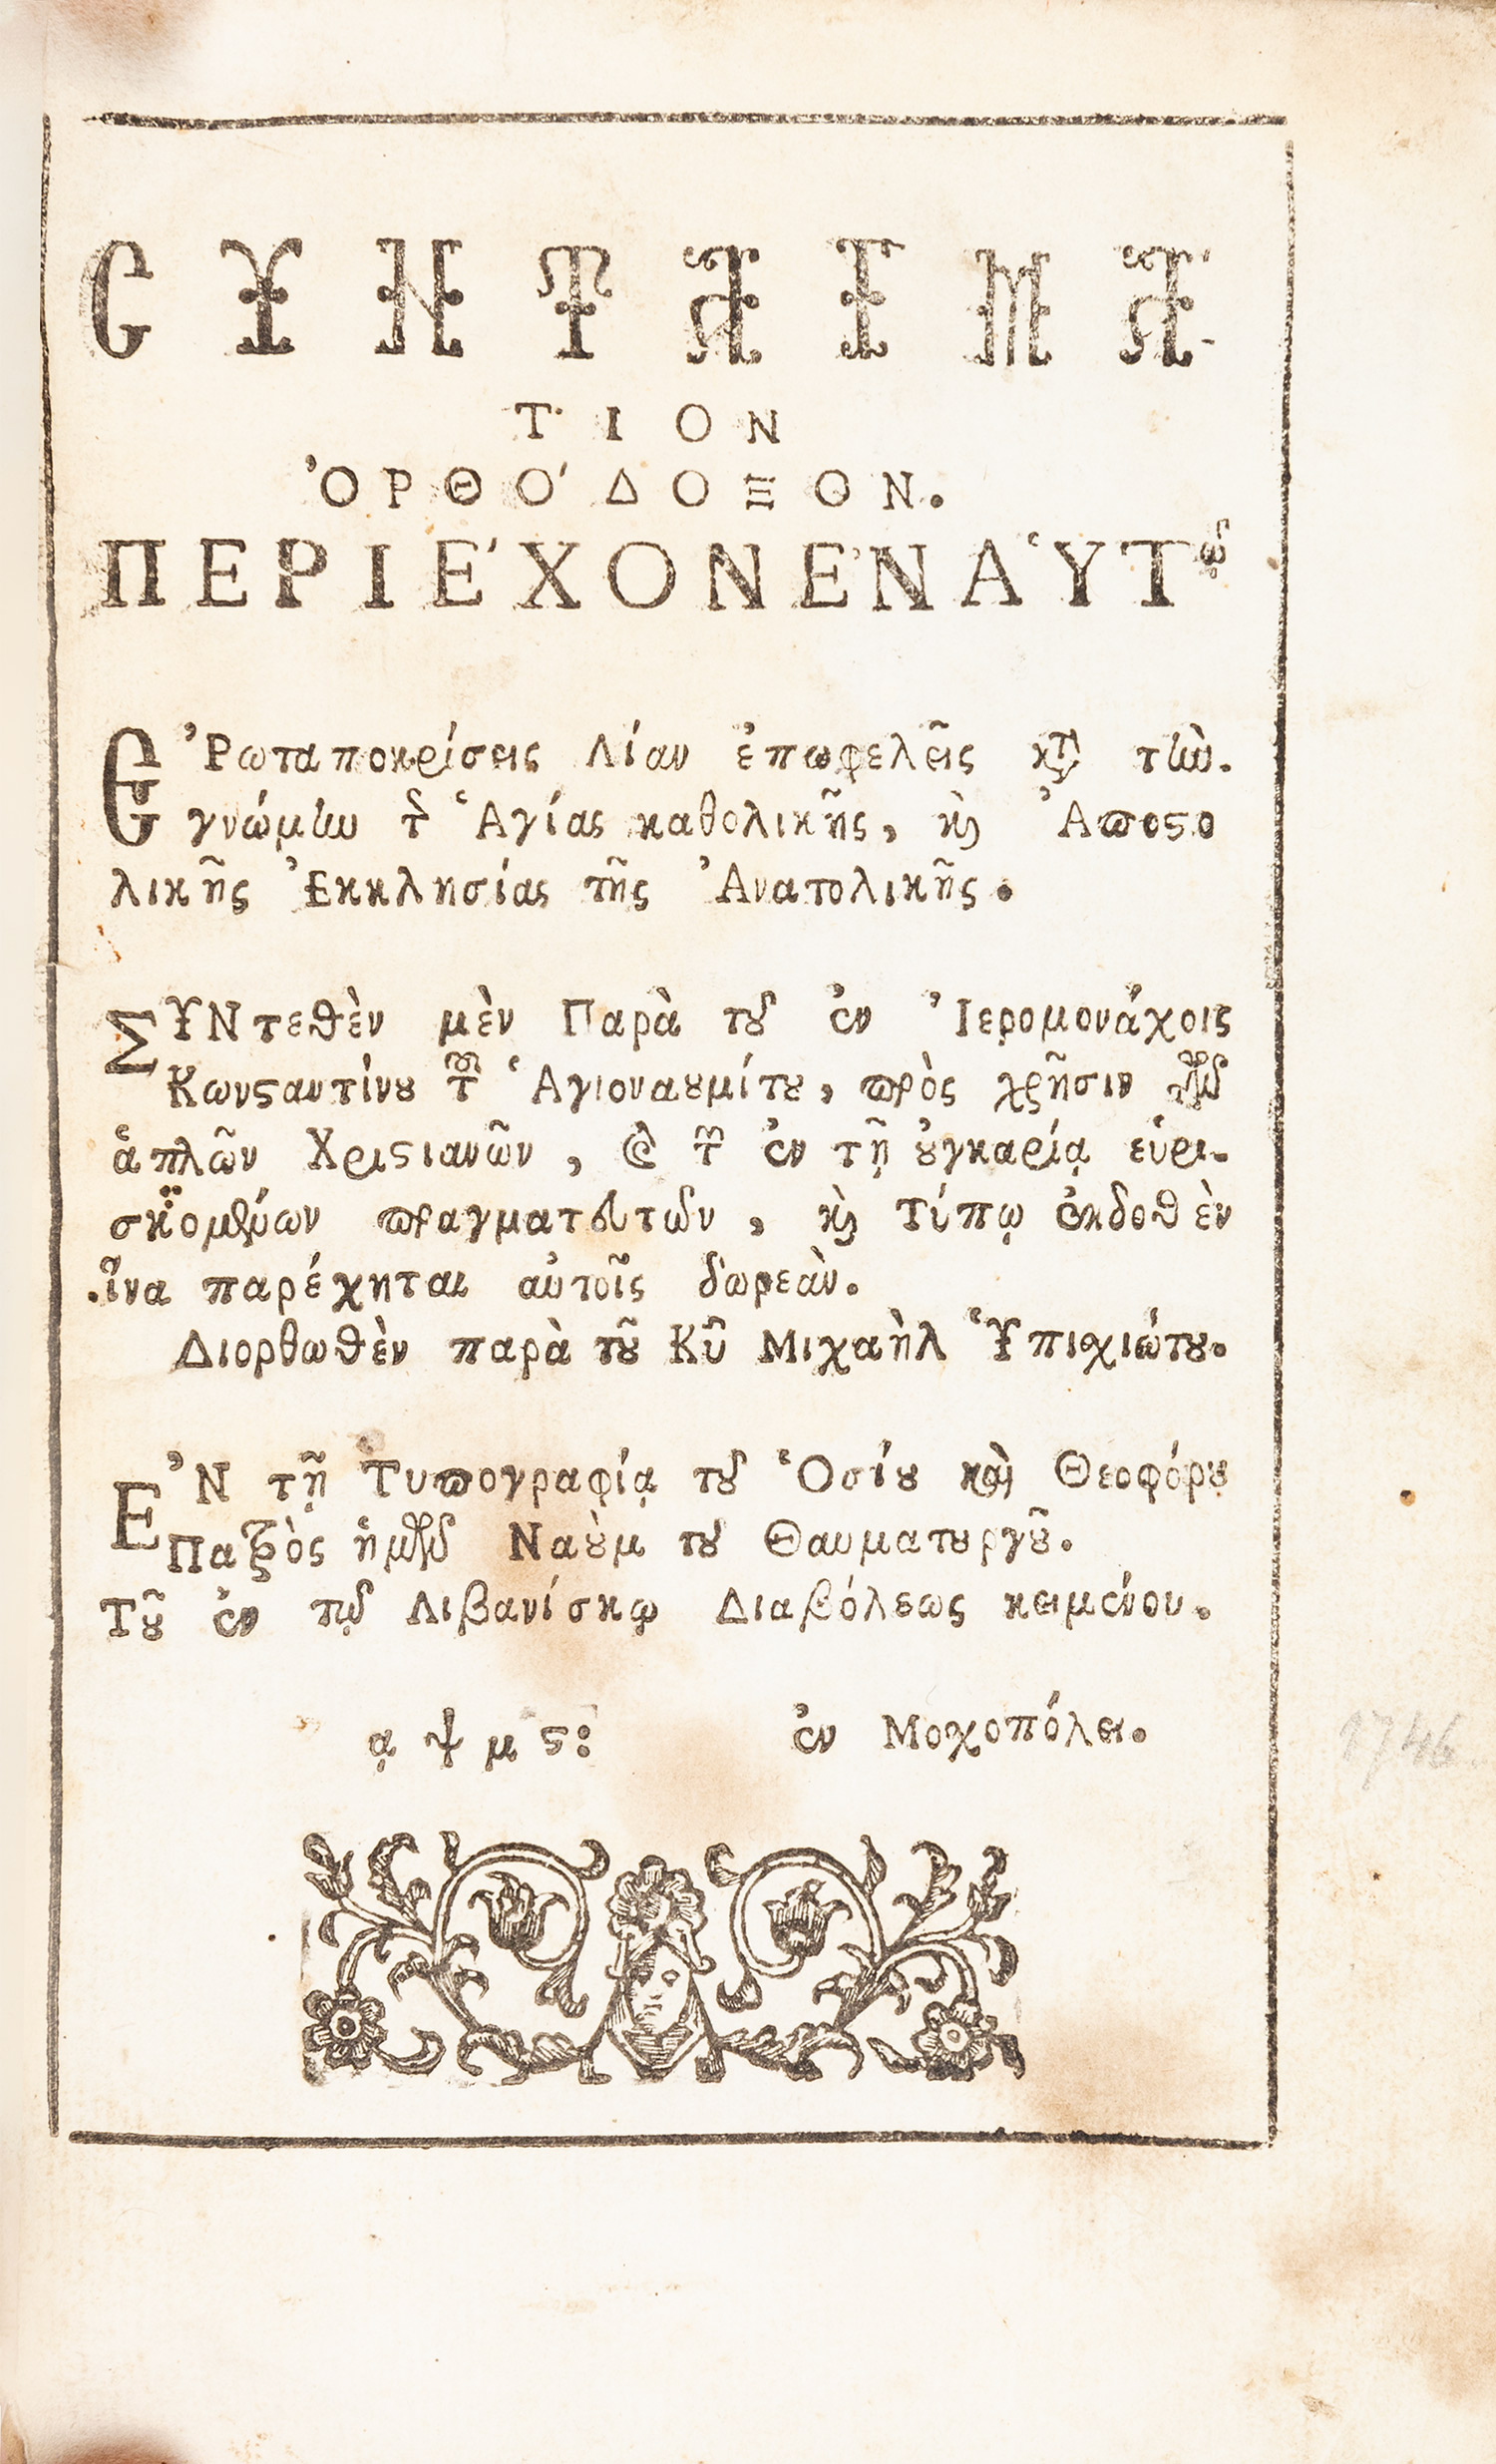 ϹΥΝΤΑΓΜΑ-
ΤΙΟΝ
ὈΡΘΌΔΟΞΟΝ.
ΠΕΡΙΈΧΟΝ ἘΝ ἉΥΤῷ
ἘΡωταποκρίσεις Λίαν ἐπωφελεῖς κτ τὼ.
γνώμίω τ Ἁγίας καθολικῆς, κὶ Ἀποϛο
λικῆς Ἐκκλησίας τῆς Ἀνατολικῆς.
ΣΥΝτεθὲν μὲν Παρὰ τȣ͂ ἐν Ἰερομονάχοις
Κωνϛαντίνȣ τ Ἁγιοναȣμίτȣ, πρὸς χρῆσιν τῶν
ἁπλῶν Χριϛιανῶν, καὶ τ ἐν τῇ ȣ̓γκαρίᾳ εὑρι-
σκομένων πραγματευτῶν, κὶ Τύπῳ ἐκδοθὲν
.ἵνα παρέχηται αὐτοῖς δωρεὰν.
Διορθωθὲν παρὰ τȣ͂ Κῦ Μιχαὴλ Ὑπιχιώτȣ.
ἘΝ τῇ Τυπογραφίᾳ τȣ͂ Ὁσίȣ καὶ Θεοφόρȣ
Πατρὸς ἡμῶν Ναȣ̀μ τȣ͂ Θαυματȣργȣ͂.
Τȣ͂ ἐν τῷ Λιβανίσκῳ Διαβόλεως κειμένου.
ᾳψμϛ: ἐν Μοχοπόλει.
1746